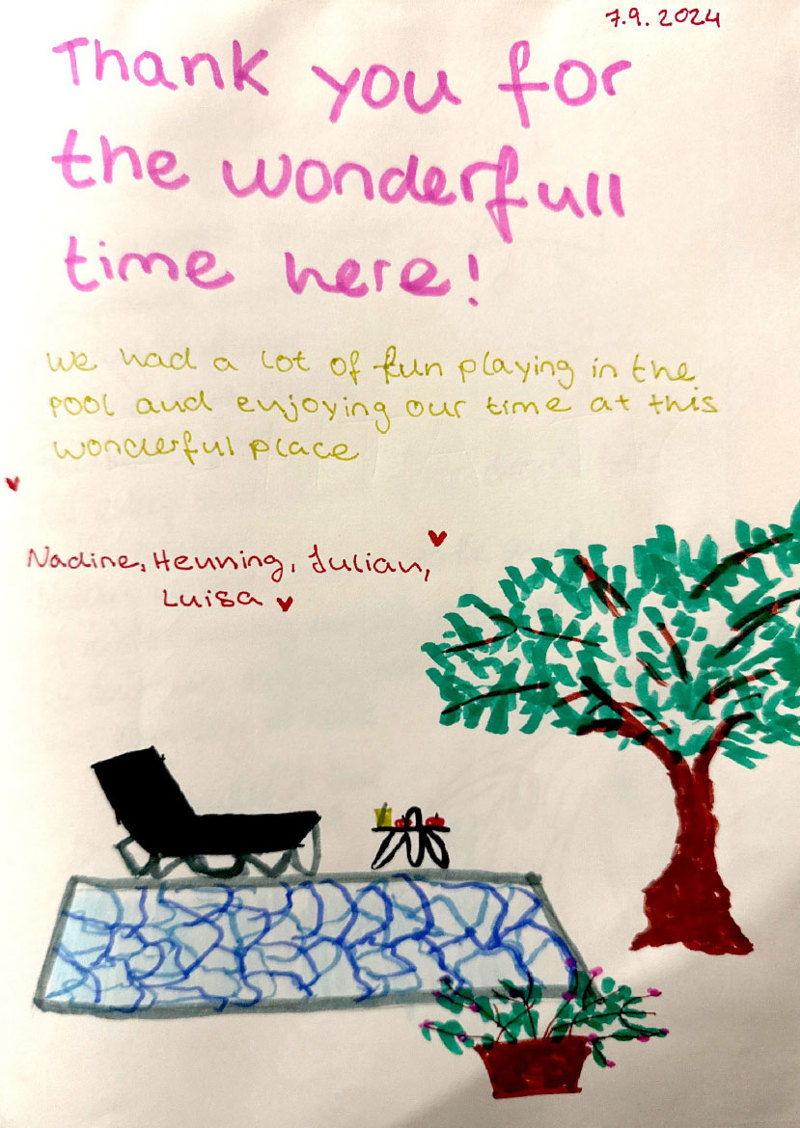 7.9.2024
Thank you for
the wonderfull
time here!
we had a lot of fun playing in the
pool and enjoying our time at this
wonderful place
Nadine, Henning, Julian,
Luisa